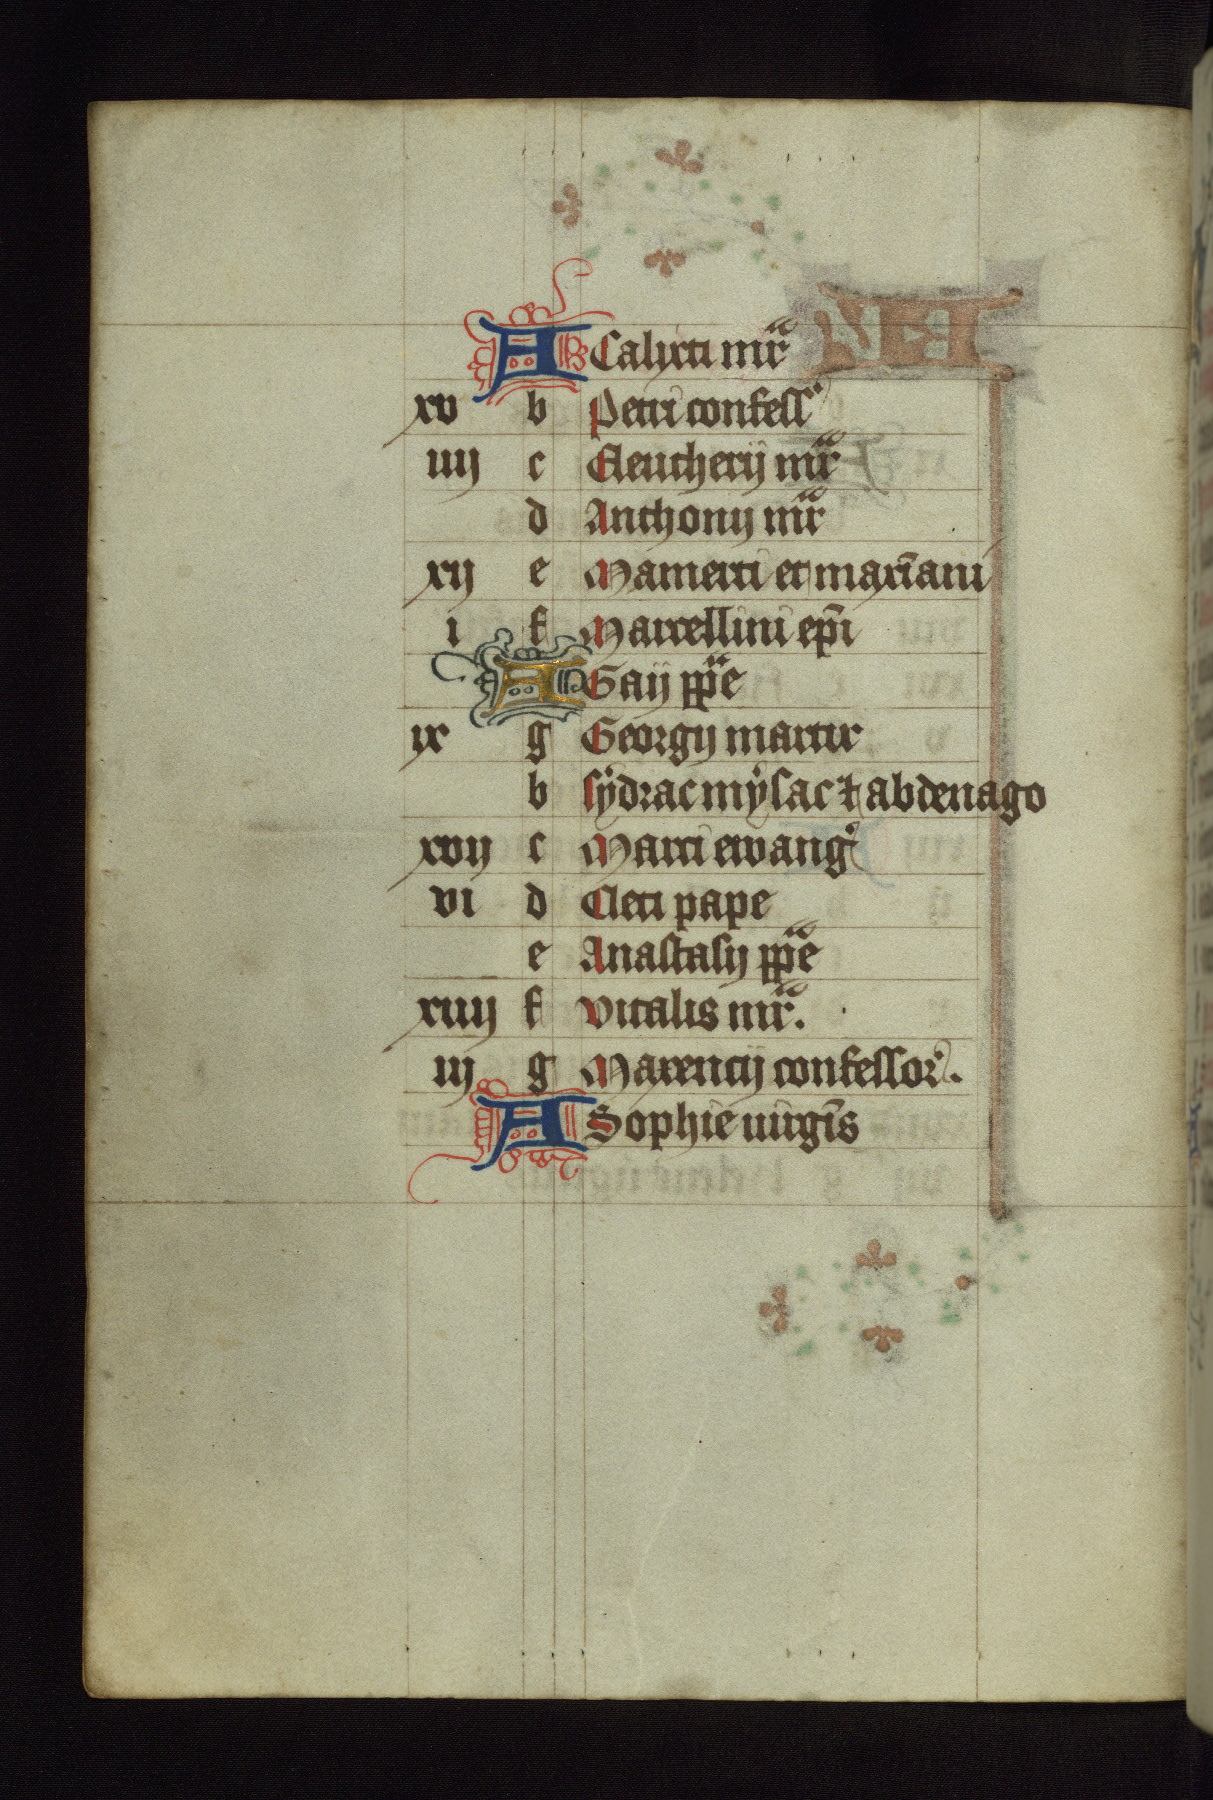 A Calixti mr̄
xv b Petri confess
iiij c Eleutherij mr̄
d Anthonij mr̄
xij e Mamerti et maxīani
i f Marcellini ep̄i
A Gaij pp̄e
ix g Georgij martir
b sydrac mysac ⁊ abdenago
xvij c Marci ewang
vi d Cleti pape
e Anastasij pp̄e
xiiij f vitalis mr̄.
iij g Maxencij confessor.
A Sophie uirgīs